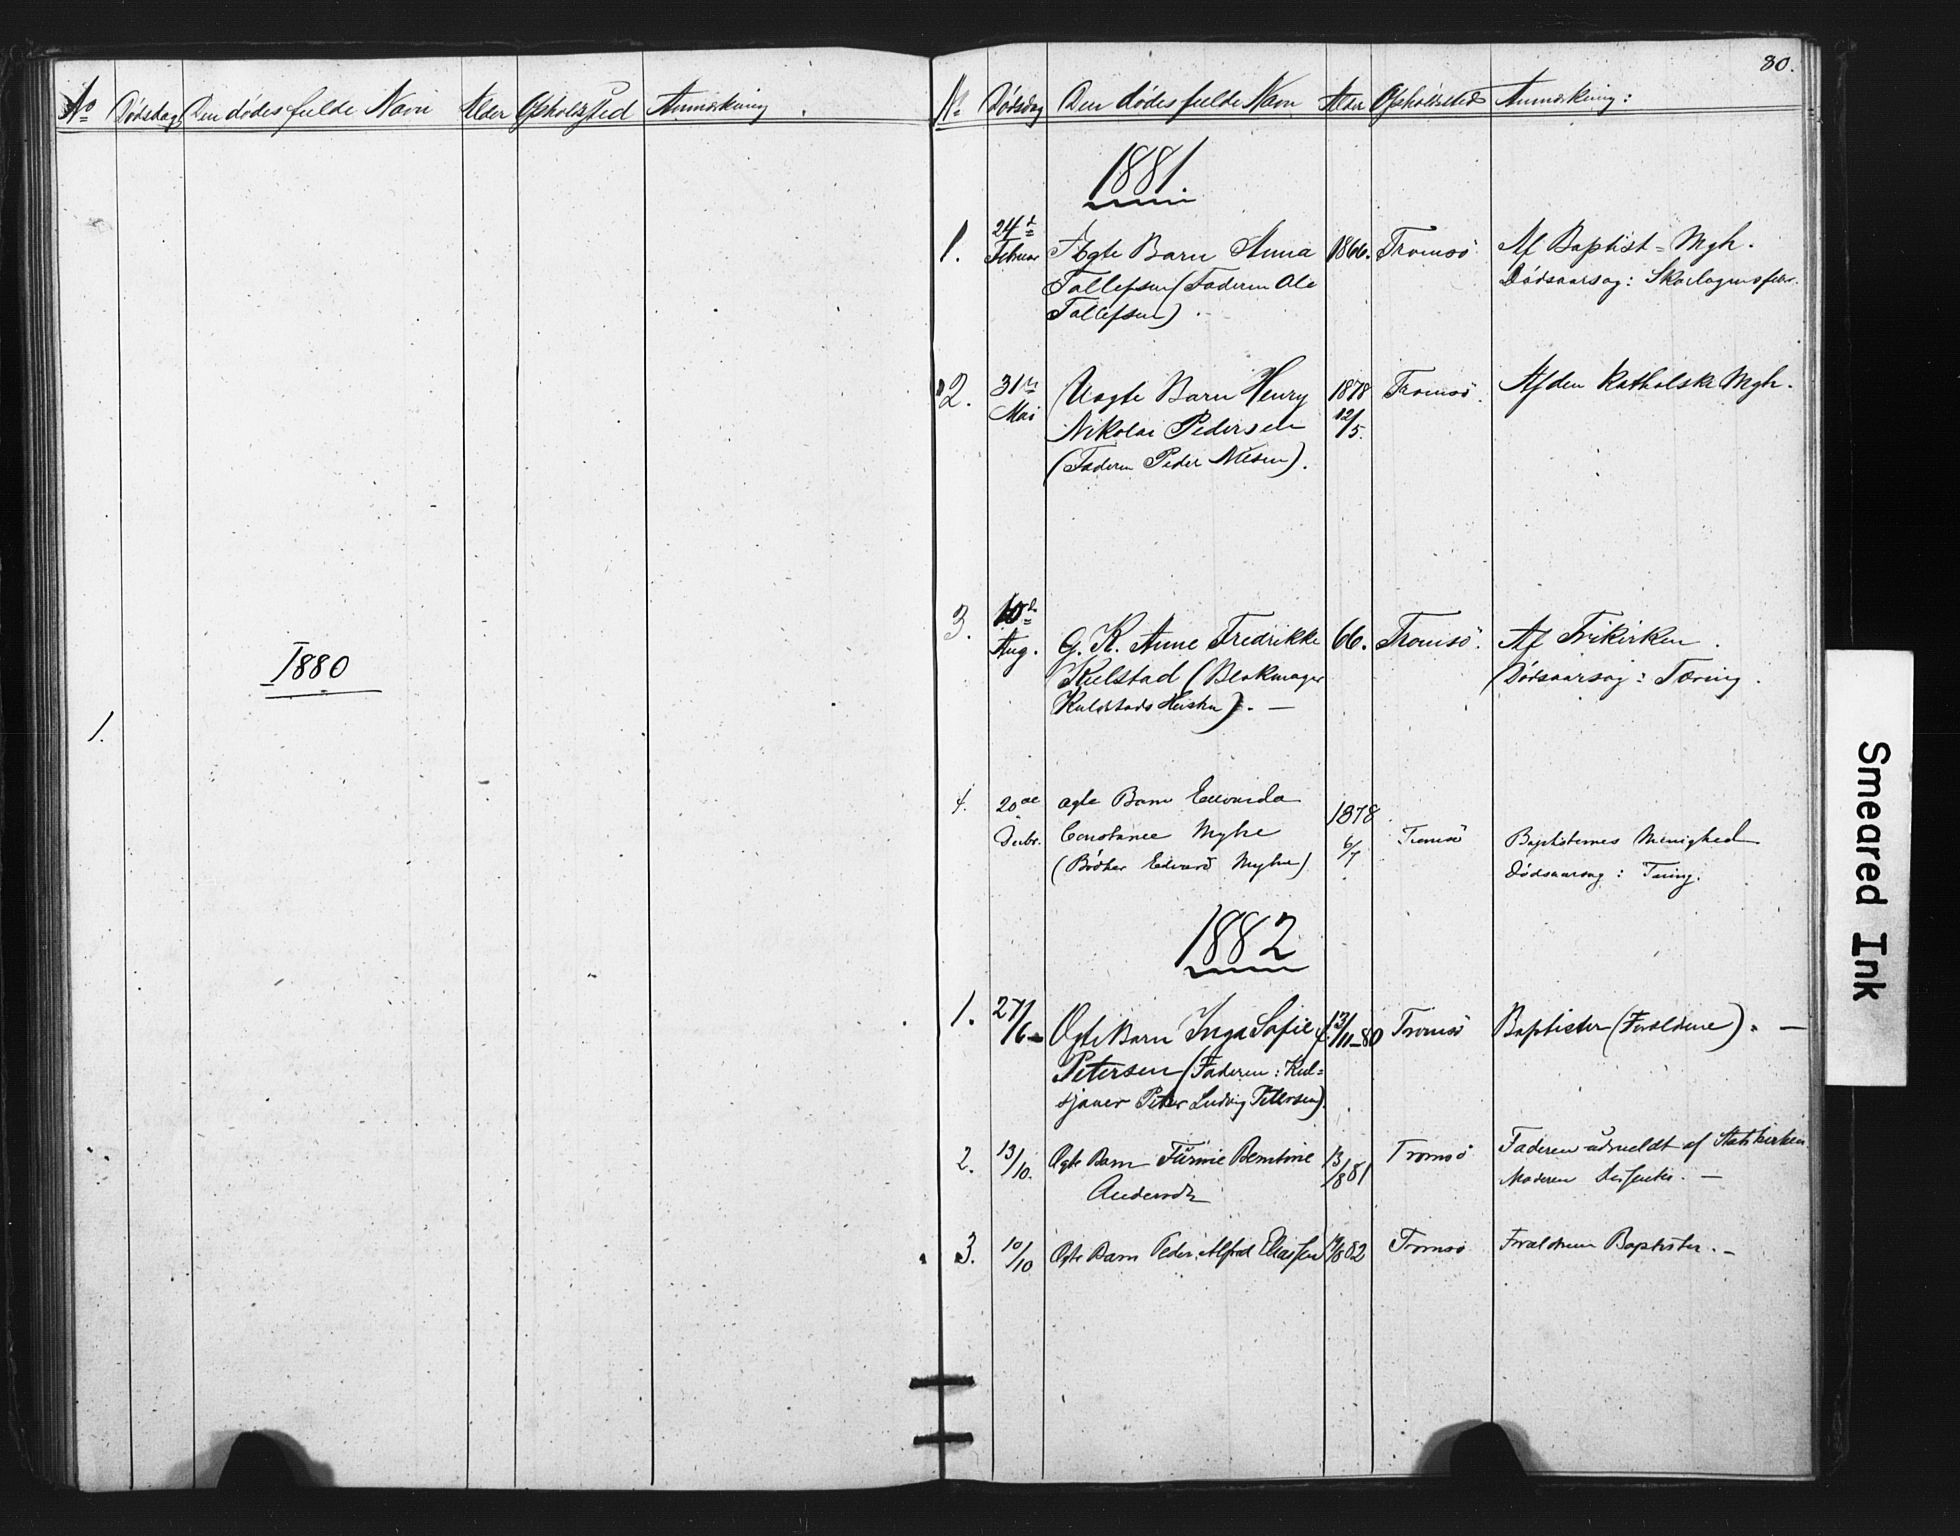 No Dødsdag Den dødes fulde Navn Alder Opholdssted Anmærkning.
1880
1.
80.
No Dødsdag Den dødes fulde Navn Alder Opholdssted Anmærkning:
1881.
1. 24de Februar Ægte Barn Anna 1866. Tromsø Af Baptist=Mgh.
Tollefsen (Faderen Ole Dødsaarsag: Skarlagensfeber.
Tollefsen).
2. 31te Mai Uægte Barn Henry 1878 Tromsø. Af den Katholske Mgh.
Nikolai Pedersen 12/5.
(Faderen Peder Nilsen).
3. 10de Aug. G. K. Anne Fredrikke 66. Tromsø. Af Frikirken.
Kulstad (Blokmager Dødsaarsag: Tæring.
Kulstads Hustru). —
4. 20de Decbr. ægte Barn Edvarda 1878
Constance Myhre 6/7 Tromsø Baptisternes Menighed
(Bødker Edvard Myhre) Dødsaarsag: Tæring.
1882
1. 27/6 Ægte Barn Inga Sofie f. 13/11-80 Tromsø Baptister (Forældrene). —
Petersen (Faderen: Kul=
sjauer Peter Ludvig Petersen).
2. 13/10. Ægte Barn Berntine 13/8 81 Tromsø Faderen udmeldt af Statskirken
Moderen Dissenter. —
3. 10/10 Ægte Barn Peder Alfred Eliassen /8 82 Tromsø Forældrene Baptister. —
Smeared Ink